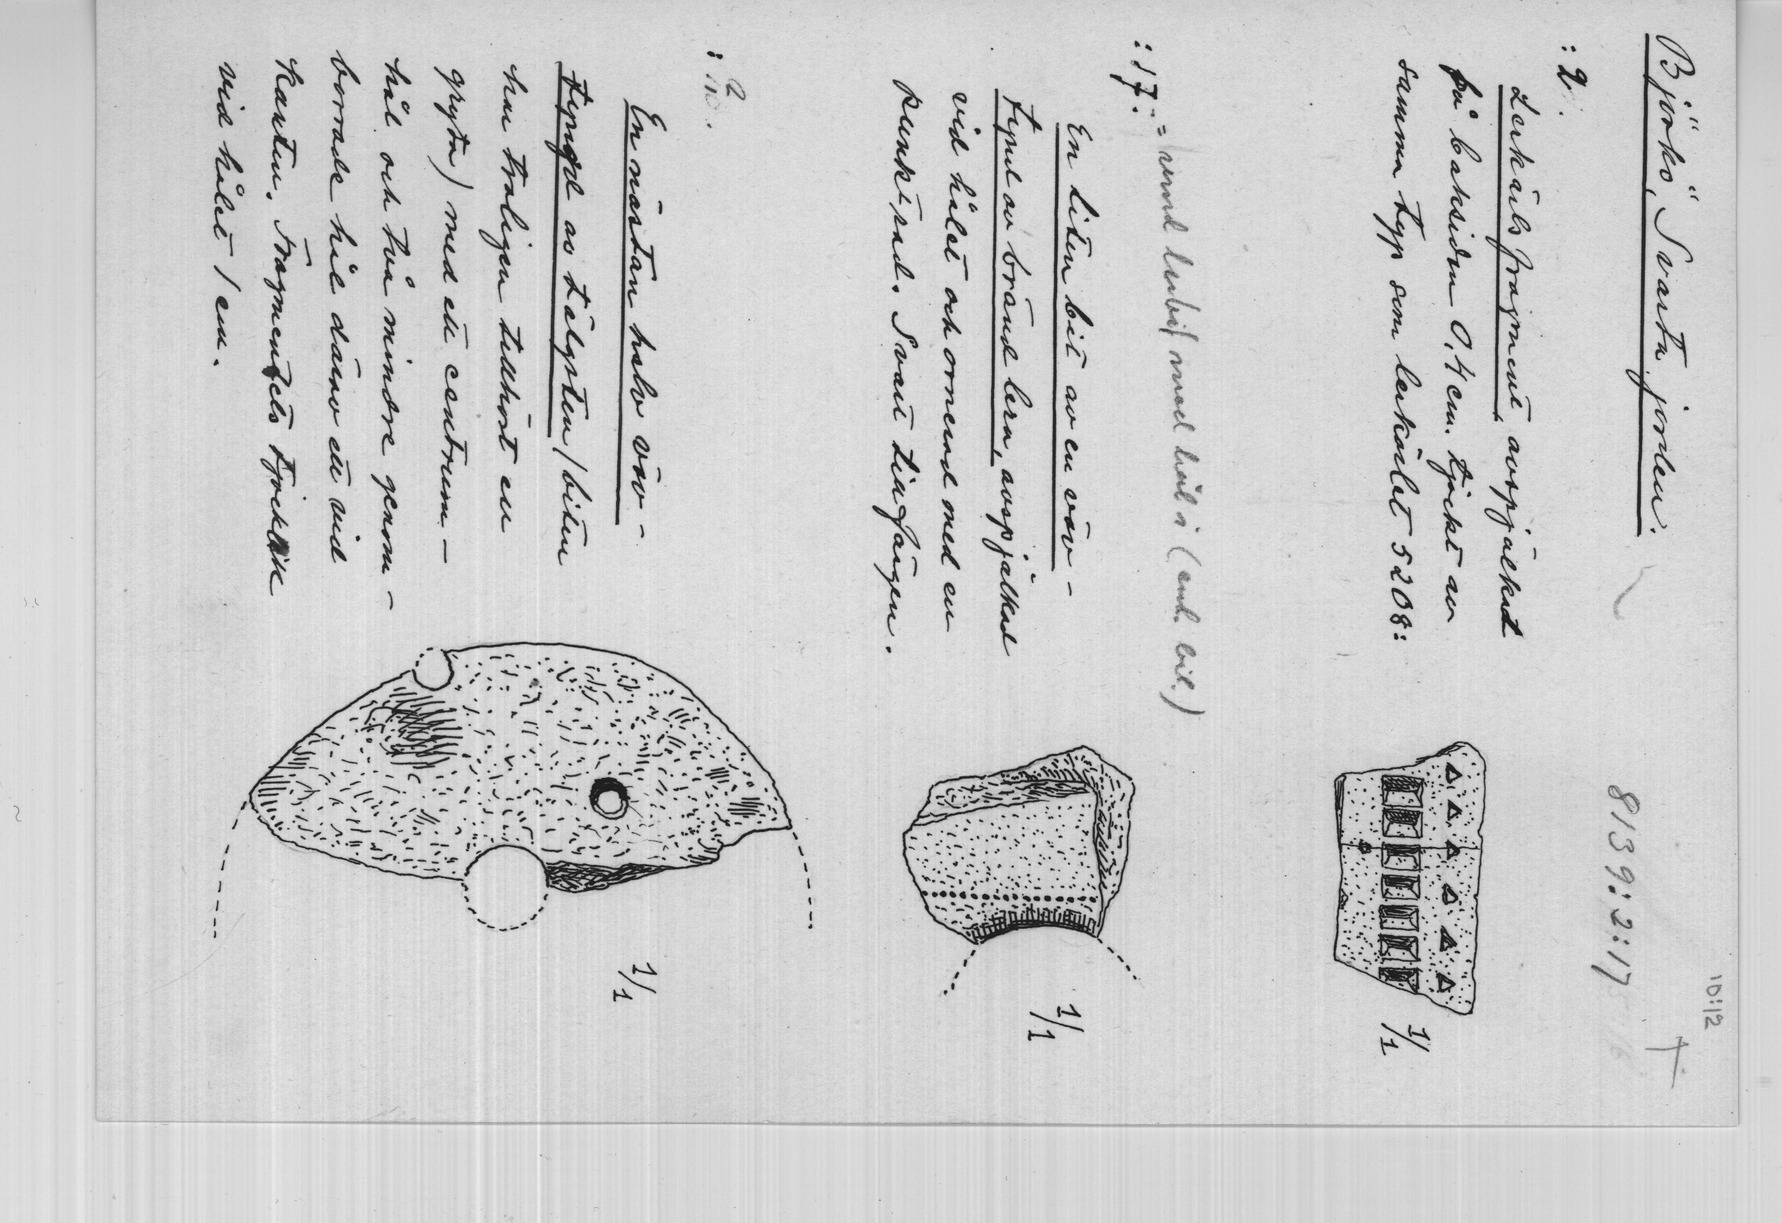 Björkö, Svarta jorden.
10:12
8139:2:17
:2.
Lerkärlsfragment, avspjälkat
på baksidan 0,4 cm. tjockt av
samma typ som lerkärlet 5208:
1/1
:17:
= rund lerbit med hål i (enl. bil.)
En liten bit av en väv-
tyngd av bränd lera, avspjälkad
vid hålet och ornerad med en
punktrad. Svart
1/1
:
En nästan halv väv-
tyngd av täljsten (biten
har troligen tillhört en
gryta) med ett centrum-
hål och två mindre genom-
borrade hål därav ett vid
kanten. Fragmentets tjocklek
vid hålet 1 cm.
1/1